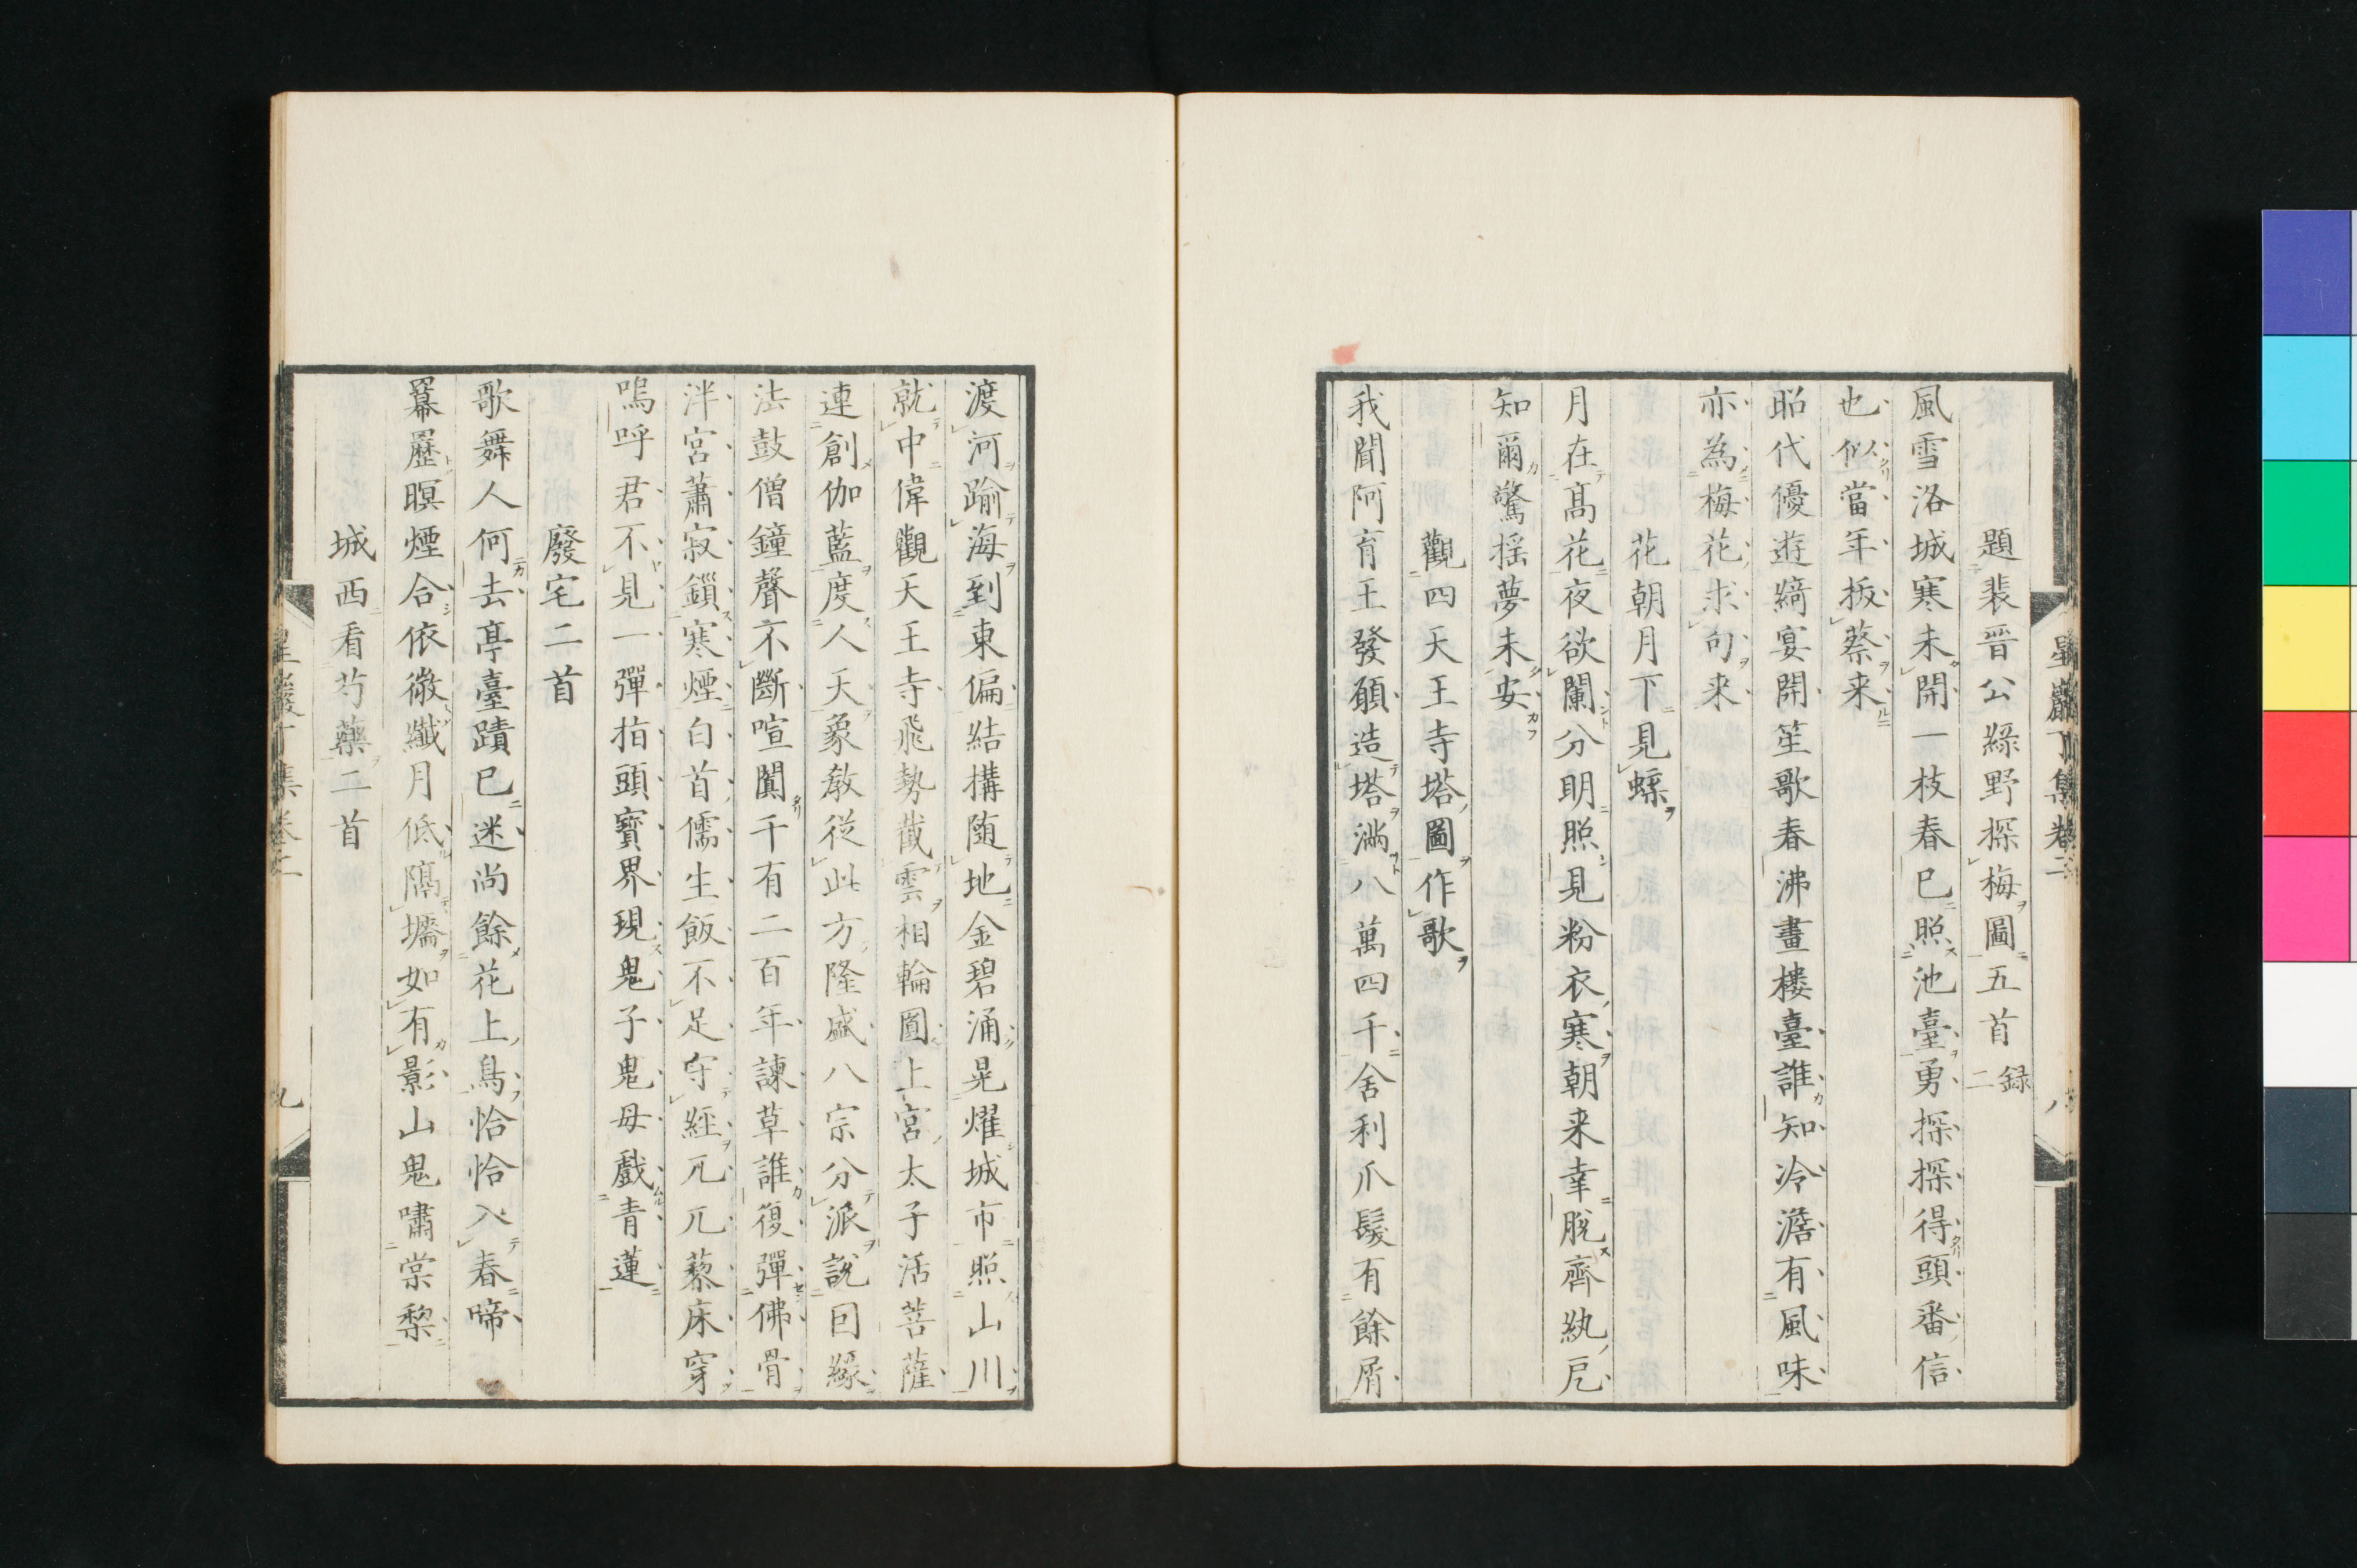 題裴晉公綠野探梅圖五首 録二
風雪洛城寒未開一枝春已照池臺勇探探得頭番信
也似當年扳蔡来
昭代優遊綺宴開笙歌春沸畫樓臺誰知冷澹有風味
亦為梅花求句来
花朝月下見蝶
月在髙花夜欲闌分明照見粉衣寒朝来幸脫齊紈戹
知爾驚揺夢未安
觀四天王寺塔圖作歌
我聞阿育王發願造塔滿八萬四千舍利爪髮有餘屑
星巖丁集卷二
八
渡河踰海到東偏結構随地金碧涌晃燿城市照山川
就中偉觀天王寺飛勢截雲相輪圓上宮太子活菩薩
連創伽藍度人天象教從此方隆盛八宗分派說因緣
法鼓僧鐘聲不斷喧闐千有二百年諫草誰復彈佛骨
泮宮蕭寂鎖寒煙白首儒生飯不足守經兀兀藜床穿
嗚呼君不見一彈指頭寶界現鬼子鬼母戲青蓮
廢宅二首
歌舞人何去亭臺蹟已迷尚餘花上鳥恰恰入春啼
羃歷暝煙合依微纖月低隔墻如有影山鬼嘯棠梨
城西看芍藥二首
星巖丁集卷二
九